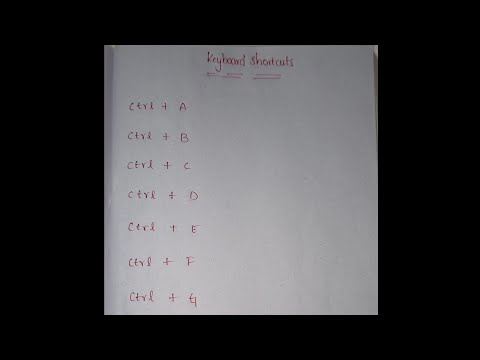 Keyboard Shortcuts
Ctrl + A
Ctrl + B
Ctrl + C
Ctrl + D
Ctrl + E
Ctrl + F
Ctrl + G